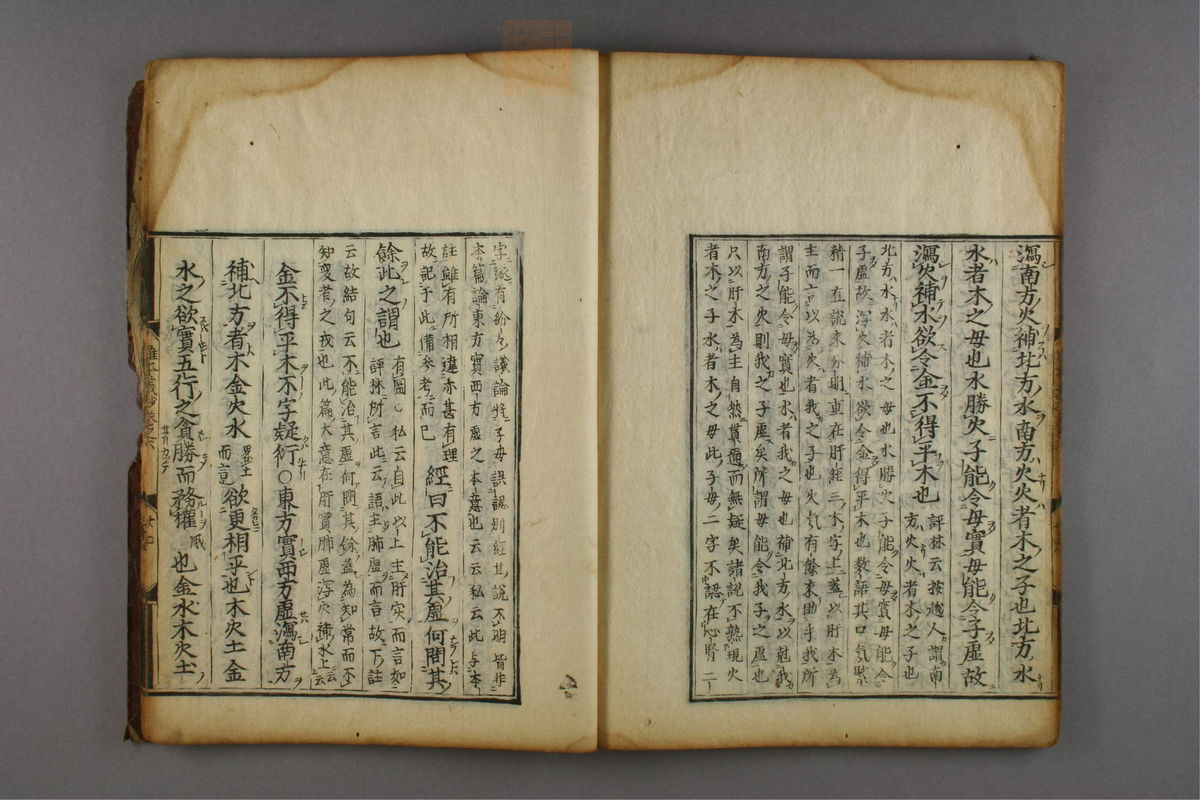 瀉南方火補北方水南方火火者木之子也北方水
水者木之母也水勝火子能令母實母能令子虛故
瀉火補水欲令金不得平木也 評林云按越人謂南方火火者木之子也
北方水水者木之母也水勝火子能令母實母能令
子虛故瀉火補水欲令金得平木也數語其口氣緊
精一直說來分明重在肝經三木字上蓋以肝木為
主而言以為火者我之子也火氣有餘來助乎我所
謂子能令母實也水者我之母也補北方水以剋我
南方之火則我之子虛矣所謂母能令我子之虛也
只以肝木為主自然貫通而無疑矣諸說不熟現火
者木之子水者木之母此子母二字不認在心腎二
字遂有紛々議論將子母誤認則經其說不明皆非
本篇論東方實西方虛之本意也云云私云此与本
註雖有所相違亦甚有理
故記于此備参考而已 經曰不能治其虛何問其
餘此之謂也 有圖 私云自此以上主肝実而言如
評林所言此云語主肺虛而言故下註
云故結句云不能治其虛何問其餘蓋為知常而不
知変者之戒也此篇大意在肝實肺虛瀉火補水上云云
金不得平木不字疑衍〇東方實西方虛瀉南方
補北方者木金火水 畧土而言 欲更相平也木火土金
水之欲實五行之貪勝而務權 也金水木火土